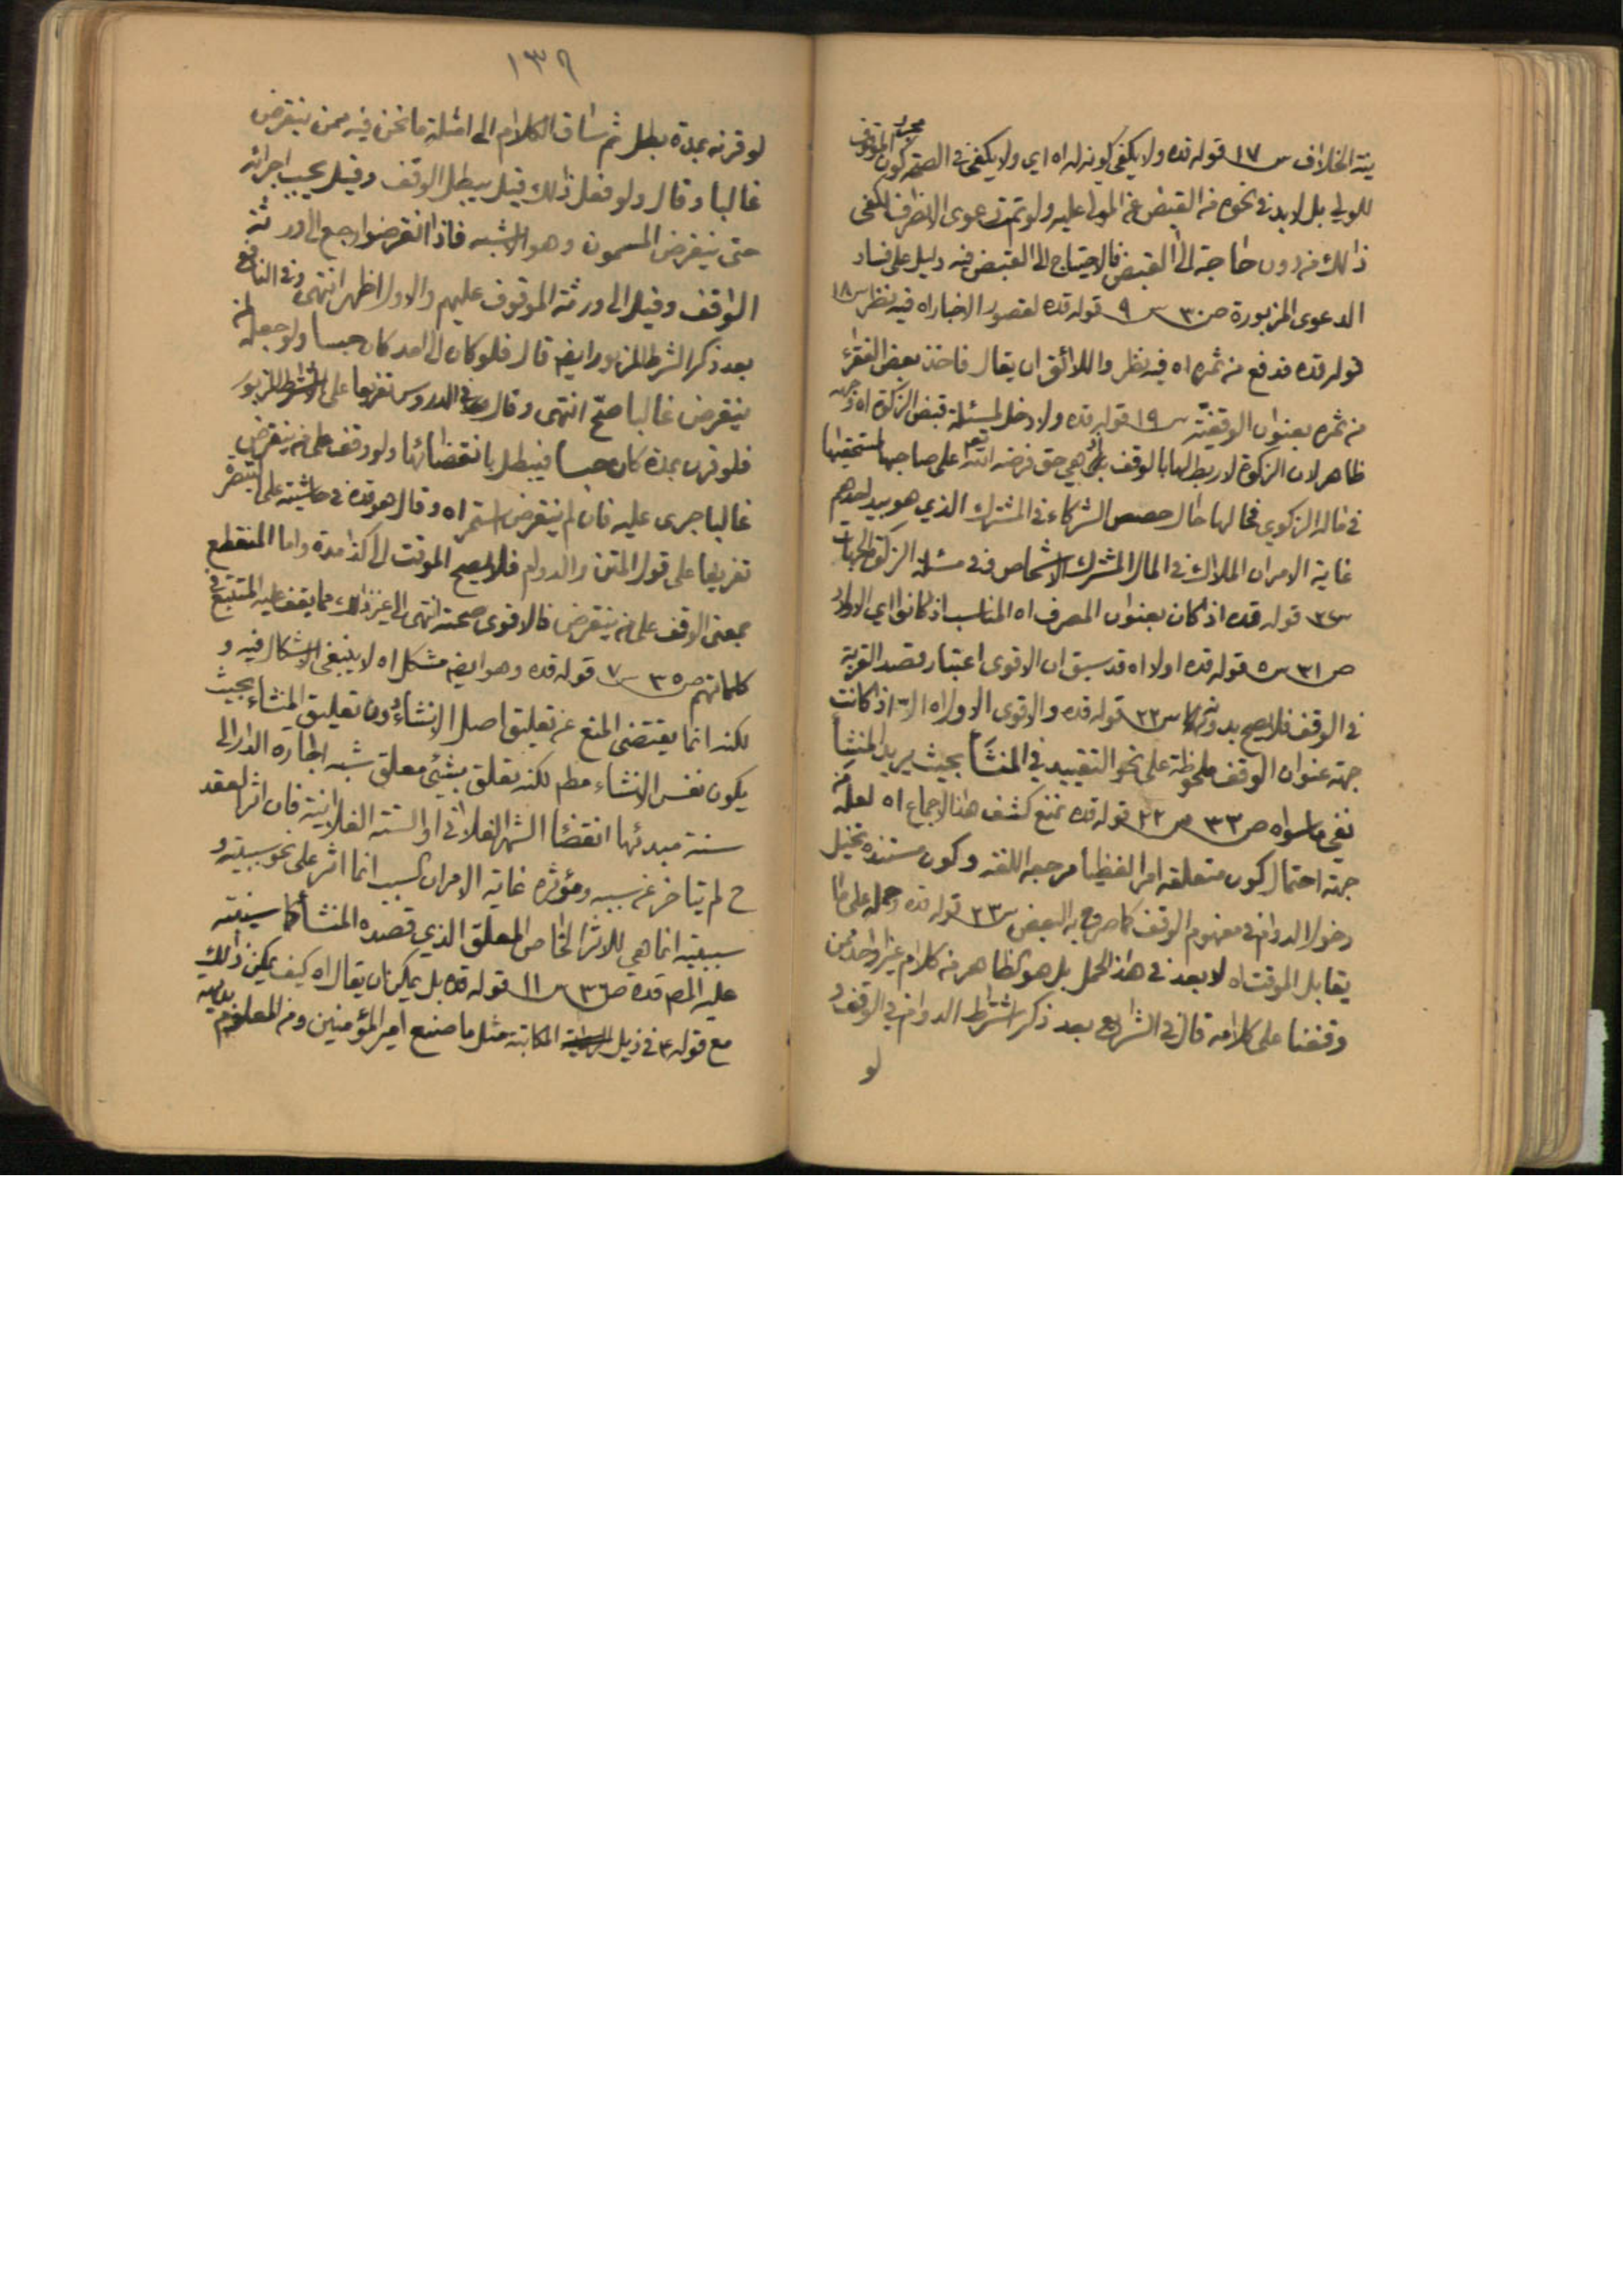 ينة الخلاف س ١٧ قوله قده ولا يكفى كونه له اه اى ولا يكفى فى الصحة مجرد كون الموقوف
للولى بل لابد فى نحوه من القبض عن المولى عليه ولو تم دعوى الانصراف لكفى
ذالك من دون حاجة الى القبض فالاحتياج الى القبض فيه دليل على فساد
الدعوى المزبورة ص ٣٠ س ٩ قوله قده لقصور الاخبار اه فيه نظر س ١٨
قوله قده فدفع من ثمره اه فيه نظر واللائق ان يقال فاخذ بعض الفقراء
من ثمره بعنوان الوقفية س ١٩ قوله قده ولا دخل لمسئلة قبض الزكوة اه وجهه
ظاهر لان الزكوة لا ربط لها بالوقف بل هى حق فرضه الله تعالى على صاحبها لمستحقيها
فى ماله الزكوي فحالها حال حصص الشركاء فى المشترك الذي هو بيد احدهم
غاية الامر ان الملاك فى المال المشترك الاشخاص وفى مسئلة الزكوة الجهات
قوله قده اذ كان بعنوان المصرف اه المناسب اذ كانوا اي الاولاد
ص ٣١ س ٥ قوله قده اولا اه قد سبق ان الاقوى اعتبار قصد القربة
فى الوقف فلا يصح بدونها س ٢٢ قوله قده والاقوى الاول اه الا اذا كانت
جهة عنوان الوقف ملحوظة على نحو التقييد في المنشأ بحيث يريد المنشِأ
نفى ماسواه ص ٣٣ س ٢٢ قوله قده نمنع كشف هذا الاجماع اه لعله من
جهة احتمال كون متعلقه امرا لفظيا مرجعه اللغة وكون مستنده تخيل
دخول الدوام فى مفهوم الوقف كما صرح به البعض س ٢٣ قوله قده وحمله على ما
يقابل الموقت اه لا بعد فى هذا الحمل بل هو الظاهر من كلام غير واحد ممن
وقفنا على كلامه قال فى الشرايع بعد ذكر اشتراط الدوام فى الوقف و
لو
١٣٩
لو قرنه بمدة بطل ثم ساق الكلام الى امثلة ما نحن فيه ممن ينقرض
غالبا وقال ولو فعل ذالك قيل يبطل الوقف وقيل يجب اجرائه
حتى ينقرض المسمون وهو الاشبه فاذا انقرضوا رجع الى ورثة
الواقف وقيل الى ورثة الموقوف عليهم والاول اظهر انتهى وفى النافع
بعد ذكر الشرط المزبور ايضا قال فلو كان الى امد كان حبسا ولو جعله لمن
ينقرض غالبا صح انتهى وقال فى الدروس تفريعا على الشرط المزبور
فلو قرن بمدة كان حبسا فيبطل بانقضائها ولو وقف على من ينقرض
غالبا جرى عليه فان لم ينقرض استمر اه وقال هو قده فى حاشيته على التبصرة
تفريعا على قول المتن والدوام فلا يصح الموقت الى كذا مدة واما المنقطع
بمعنى الوقف على من ينقرض فالاقوى صحته انتهى الى غير ذالك مما يقف عليه المتتبع فى
كلماتهم ص ٣٥ س ٧ قوله قده وهو ايضا مشكل اه لا ينبغى الاشكال فيه و
لكنه انما يقتضى المنع عن تعليق اصل الانشاء دون تعليق المنشاء بحيث
يكون نفس الانشاء مطم لكنه تعلق بشيئ معلق شبه اجاره الدار الى
سنة مبدئها انقضاء الشهر الفلانى او السنة الفلانية فان اثر العقد
ح لم يتاخر عن سببه ومؤثره غاية الامر ان السبب انما اثر على نحو سببيته و
سببيته انما هي للاثر الخاص المعلق الذي قصده المنشأ كما سينبه
عليه المصم قده ص ٣٦ س ١١ قوله قده بل يمكن ان يقال اه كيف يمكن ذالك
مع قوله ع فى ذيل المكاتبة مثل ما صنع امير المؤمنين ومن المعلوم